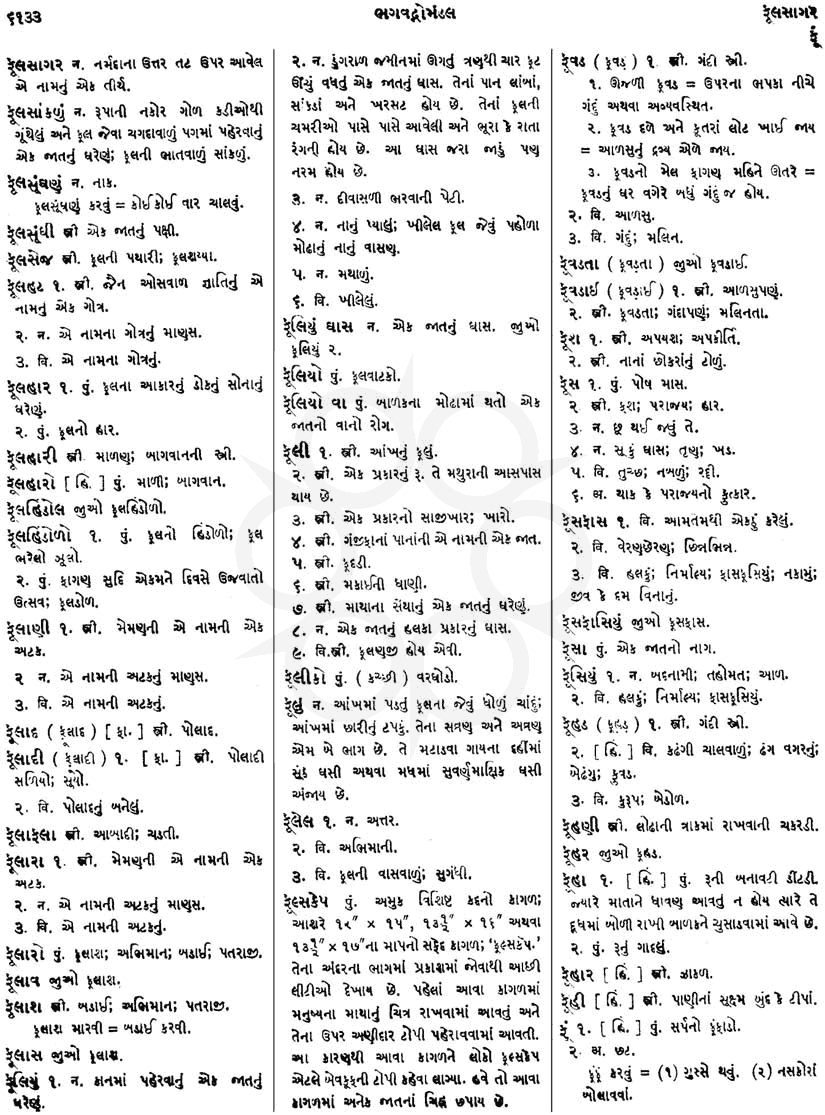 ૬૧૩૩
ભગવદ્ગોમંડલ
ફૂલસાગર
ફૂં
ફૂલસાગર ન. નર્મદાના ઉત્તર તટ ઉપર આવેલ
એ નામનું એક તીર્થ.
ફૂલસાંકળું ન. રૂપાની નકોર ગોળ કડીઓથી
ગૂંથેલું અને ફૂલ જેવા ચગદાવાળું પગમાં પહેરવાનું
એક જાતનું ઘરેણું; ફૂલની ભાતવાળું સાંકળું.
ફૂલસૂંઘણું ન. નાક.
ફૂલસૂંઘણું કરવું = કોઈ કોઈ વાર ચાલવું.
ફૂલસૂંઘી સ્ત્રી એક જાતનું પક્ષી.
ફૂલસેજ સ્ત્રી. ફૂલની પથારી; ફૂલશય્યા.
ફૂલહટ ૧. સ્ત્રી. જૈન ઓસવાળ જ્ઞાતિનું એ
નામનું એક ગોત્ર.
૨. ન. એ નામના ગોત્રનું માણસ.
૩. વિ. એ નામના ગોત્રનું.
ફૂલહાર ૧. પું. ફૂલના આકારનું ડોકનું સોનાનું
ઘરેણું.
૨. પું. ફૂલનો હાર.
ફૂલહારી સ્ત્રી. માળણ; બાગવાનની સ્ત્રી.
ફૂલહારો [ હિં. ] પું. માળી; બાગવાન.
ફૂલહિંડોલ જુઓ ફૂલહિંડોળો.
ફૂલહિંડોળો ૧. પું. ફૂલનો હિંડોળો; ફૂલ
ભરેલો ઝૂલો.
૨. પું. ફાગણ સુદિ એકમને દિવસે ઉજવાતો
ઉત્સવ; ફૂલડોળ.
ફૂલાણી ૧. સ્ત્રી. મેમણની એ નામની એક
અટક.
૨ ન. એ નામની અટકનું માણસ.
૩. વિ. એ નામની અટકનું.
ફૂલાદ ( ફૂલાદ ) [ ફા. ] સ્ત્રી. પોલાદ.
ફૂલાદી ( ફૂલાદી ) ૧. [ ફા. ] સ્ત્રી. પોલાદી
સળિયો; સૂયો.
૨. વિ. પોલાદનું બનેલું.
ફૂલાફલા સ્ત્રી. આબાદી; ચડતી.
ફૂલારા ૧. સ્ત્રી. મેમણની એ નામની એક
અટક.
૨. ન. એ નામની અટકનું માણસ.
૩. વિ. એ નામની અટકનું.
ફૂલારો પું. ફૂલારા; અભિમાન; બડાઈ; પતરાજી.
ફૂલાવ જુઓ ફૂલારા.
ફૂલાશ સ્ત્રી. બડાઈ; અભિમાન; પતરાજી.
ફૂલાશ મારવી = બડાઈ કરવી.
ફૂલાસ જુઓ ફૂલાશ.
ફૂલિયું ૧. ન. કાનમાં પહેરવાનું એક જાતનું
ઘરેણું.
૨. ન. ડુંગરાળ જમીનમાં ઊગતું ત્રણથી ચાર ફૂટ
ઊંચું વધતું એક જાતનું ઘાસ. તેનાં પાન લાંબાં,
સાંકડાં અને ખરસટ હોય છે. તેનાં ફૂલની
ચમરીઓ પાસે પાસે આવેલી અને ભૂરા કે રાતા
રંગની હોય છે. આ ઘાસ જરા જાડું પણ
નરમ હોય છે.
૩. ન. દીવાસળી ભરવાની પેટી.
૪. ન. નાનું પ્યાલું; ખીલેલ ફૂલ જેવું પહોળા
મોઢાનું નાનું વાસણ.
૫. ન. મથાળું.
૬. વિ. ખીલેલું.
ફૂલિયું ઘાસ ન. એક જાતનું ઘાસ. જુઓ
ફૂલિયું ૨.
ફૂલિયો પું. ફૂલવાટકો.
ફૂલિયો વા પું. બાળકના મોઢામાં થતો એક
જાતનો વાનો રોગ.
ફૂલી ૧. સ્ત્રી. આંખનું ફૂલું.
૨. સ્ત્રી. એક પ્રકારનું રૂ. તે મથુરાની આસપાસ
થાય છે.
૩. સ્ત્રી. એક પ્રકારનો સાજીખાર; ખારો.
૪. સ્ત્રી. ગંજીફાનાં પાનાંની એ નામની એક જાત.
૫. સ્ત્રી. ફૂદડી.
૬. સ્ત્રી. મકાઈની ધાણી.
૭. સ્ત્રી. માથાના સેંથાનું એક જાતનું ઘરેણું.
૮. ન. એક જાતનું હલકા પ્રકારનું ઘાસ.
૯. વિ.સ્ત્રી. ફૂલણજી હોય એવી.
ફૂલીકો પું. ( કચ્છી ) વરઘોડો.
ફૂલું ન. આંખમાં પડતું ફૂલના જેવું ધોળું ચાંદું;
આંખમાં છારીનું ટપકું. તેના સવ્રણ અને અવ્રણ
એમ બે ભાગ છે. તે મટાડવા ગાયના દહીંમાં
સૂંઠ ઘસી અથવા મધમાં સુવર્ણમાક્ષિક ઘસી
અંજાય છે.
ફૂલેલ ૧. ન. અત્તર.
૨. વિ. અભિમાની.
૩. વિ. ફૂલની વાસવાળું; સુગંધી.
ફૂલ્સકેપ પું. અમુક વિશિષ્ટ કદનો કાગળ;
આશરે ૧૨" × ૧૫", ૧૩½" × ૧૬" અથવા
૧૩½" × ૧૭"ના માપનો સફેદ કાગળ; 'ફૂલ્સકૅપ.'
તેના અંદરના ભાગમાં પ્રકાશમાં જોવાથી આછી
લીટીઓ દેખાય છે. પહેલાં આવા કાગળમાં
મનુષ્યના માથાનું ચિત્ર રાખવામાં આવતું અને
તેના ઉપર અણીદાર ટોપી પહેરાવવામાં આવતી.
આ કારણથી આવા કાગળને લોકો ફૂલ્સકૅપ
એટલે બેવકૂફની ટોપી કહેવા લાગ્યા. હવે તો આવા
કાગળમાં અનેક જાતનાં ચિહ્ન છપાય છે.
ફૂવડ ( ફૂવડ઼ ) ૧. સ્ત્રી. ગંદી સ્ત્રી.
૧. ઊજળી ફૂવડ = ઉપરના ભપકા નીચે
ગંદું અથવા અવ્યવસ્થિત.
૨. ફૂવડ દળે અને કૂતરાં લોટ ખાઈ જાય
= આળસુનું દ્રવ્ય એળે જાય.
૩. ફૂવડનો મેલ ફાગણ મહિને ઊતરે =
ફૂવડનું ઘર વગેરે બધું ગંદું જ હોય.
૨. વિ. આળસુ.
૩. વિ. ગંદું; મલિન.
ફૂવડતા ( ફૂવડ઼તા ) જુઓ ફૂવડાઈ.
ફૂવડાઈ ( ફૂવડ઼ાઈ ) ૧. સ્ત્રી. આળસુપણું.
૨. સ્ત્રી. ફૂવડતા; ગંદાપણું; મલિનતા.
ફૂશ ૧. સ્ત્રી. અપયશ; અપકીર્તિ.
૨. સ્ત્રી. નાનાં છોકરાંનું ટોળું.
ફૂસ ૧. પું. પોષ માસ.
૨ સ્ત્રી. ફશ; પરાજય; હાર.
૩. ન. છૂ થઈ જવું તે.
૪. ન. સૂકું ઘાસ; તૃણ; ખડ.
૫. વિ. તુચ્છ; નબળું; રદ્દી.
૬. અ. થાક કે પરાજયનો ફુત્કાર.
ફૂસફાસ ૧. વિ. આમતેમથી એકઠું કરેલું.
૨. વિ. વેરણછેરણ; છિન્નભિન્ન.
૩. વિ. હલકું; નિર્માલ્ય; ફાસફૂસિયું; નકામું;
જીવ કે દમ વિનાનું.
ફૂસફાસિયું જુઓ ફૂસફાસ.
ફૂસા પું. એક જાતનો નાગ.
ફૂસિયું ૧. ન. બદનામી; તહોમત; આળ.
૨. વિ. હલકું; નિર્માલ્ય; ફાસફૂસિયું.
ફૂહડ ( ફૂહડ઼ ) ૧. સ્ત્રી. ગંદી સ્ત્રી.
૨. [ હિં. ] વિ. કઢંગી ચાલવાળું; ઢંગ વગરનું;
બેઢંગુ; ફુવડ.
૩. વિ. કુરૂપ; બેડોળ.
ફૂહણી સ્ત્રી. લોઢાની ત્રાકમાં રાખવાની ચકરડી.
ફૂહર જુઓ ફૂહડ.
ફૂહા ૧. [ હિં. ] પું. રૂની બનાવટી ડીંટડી.
જ્યારે માતાને ધાવણ આવતું ન હોય ત્યારે તે
દૂધમાં બોળી રાખી બાળકને ચુસાડવામાં આવે છે.
૨. પું. રૂનું ગાદલું.
ફૂહાર [ હિં. ] સ્ત્રી. ઝાકળ.
ફૂહી [ હિં. ] સ્ત્રી. પાણીનાં સૂક્ષ્મ બુંદ કે ટીપાં.
ફૂં ૧. [ હિં. ] પું. સર્પનો ફૂંફાડો.
૨. અ. છટ.
ફૂં ફૂં કરવું = (૧) ગુસ્સે થવું. (૨) નસકોરાં
બોલાવવાં.